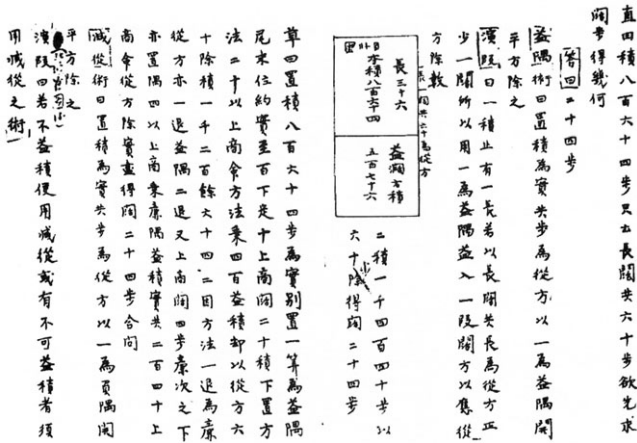 直田積八百六十四步只云長闊共六十步欲先求
闊步得幾何
答曰二十四步
益隅術曰置積為實共步為從方以一為益隅開
平方除之
演段曰一積止有一長若以長闊共長為從方正
少一闊所以用一為益隅益入一段闊方以應從
方除數
長闊共六十為從方
長三十六
本積八百六十四
益闊方積
五百七十六
二積一千四百四十步以
六十除得闊二十四步
草曰置積八百六十四步為實別置一算為益隅
尾末位約實至百下定十上商闊二十積下置方
法二十以上商命方法乘四百益積却以從方六
十除積一千二百餘六十四二因方法一退為廉
從方亦一退益隅二退又上商闊四步廉次之下
亦置隅四以上商乘廉隅益積實共二百四十上
商命從方除實盡得闊二十四步合問
減從術曰置積為實共步為從方以一為負隅開
平方除之
演段曰若不益積便用減從或有不可益積者須
用減從之術